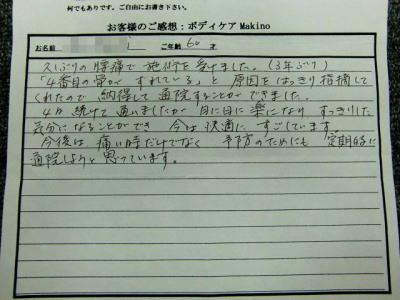 何でもあります。ご自由にお書き下さい。
お客様のご感想：ボディケアMakino
お名前 ご年齢 60才
久しぶりの腰痛で 施術を受けました。（3年ぶり）
「4番目の骨が ずれている」と 原因をはっきり指摘して
くれたので 納得して通院することができました。
4日 続けて通いましたが 日に日に楽になり すっきりした
気分になることができ 今は快適に すごしています。
今後は 痛い時だけでなく 予防のためにも 定期的に
通院しようと思っています。